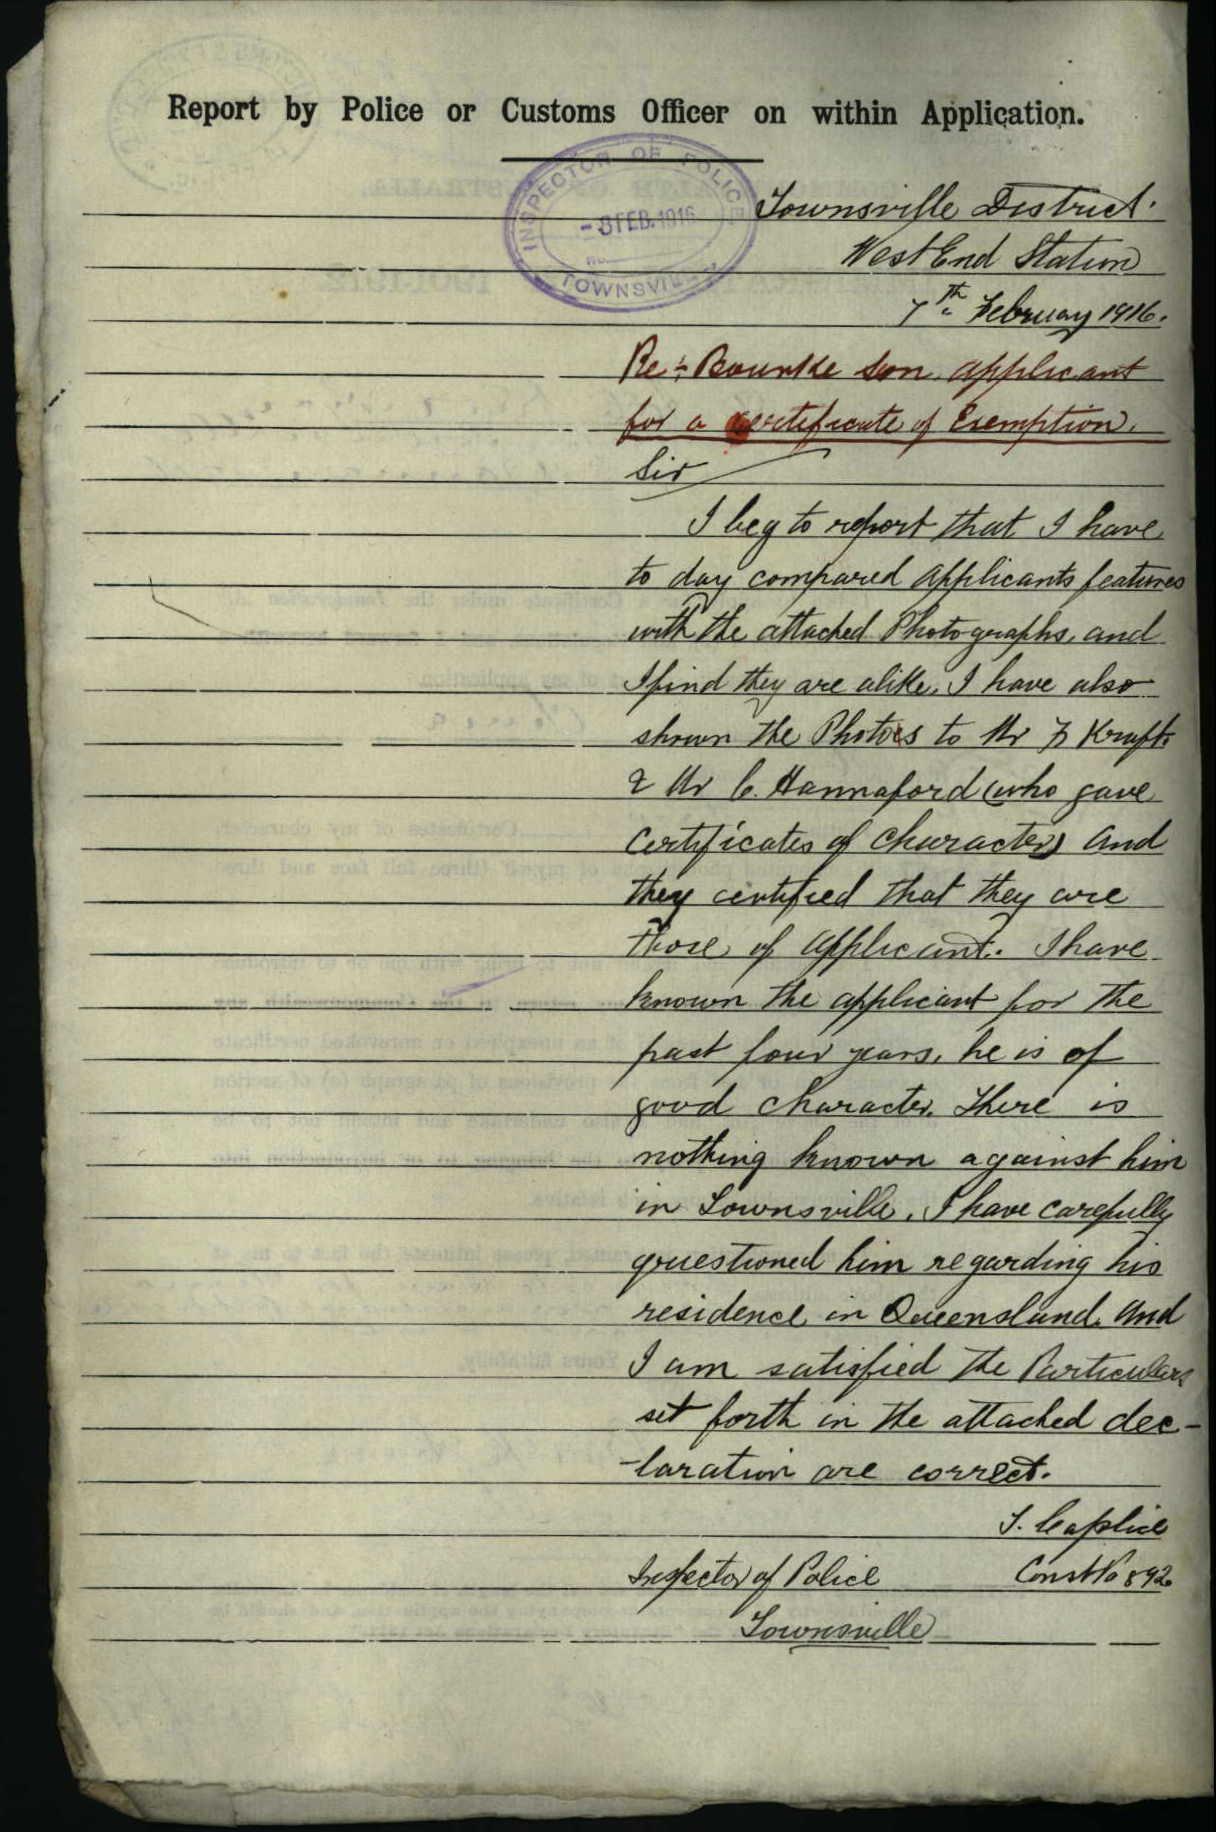 Report by Police or Customs Officer on within Application.
INSPECTOR OF POLICE
-8 FEB. 1916
No.
TOWNSVILLE
Townsville District.
West End Station
7th February 1916.
Re:- Bourke Son applicant
for a certificate of Exemption.
Sir
I beg to report that I have
to day compared applicants features
with the attached Photographs, and
I find they are alike. I have also
shown the Photos to Mr F Kraft
& Mr C. Hannaford (who gave
Certificates of Character) and
they certified that they are
those of applicant. I have
known the applicant for the
past four years, he is of
good character. There is
nothing known against him
in Townsville. I have carefully
questioned him regarding his
residence in Queensland. And
I am satisfied the Particulars
set forth in the attached dec-
-laration are correct.
T. Caplice
Inspector of Police Const No 892
Townsville